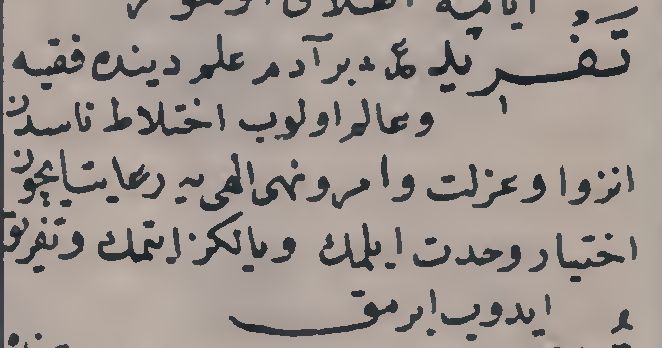 تفريد ع بر آدم علم دينده فقيه
وعالم اولوب اختلاط ناسدن
انزوا وعزلت وامر ونهى الهى يه رعايت ايچون
اختيار وحدت ايلمك ويالكز ايتمك وتفريق
ايدوب ايرمق